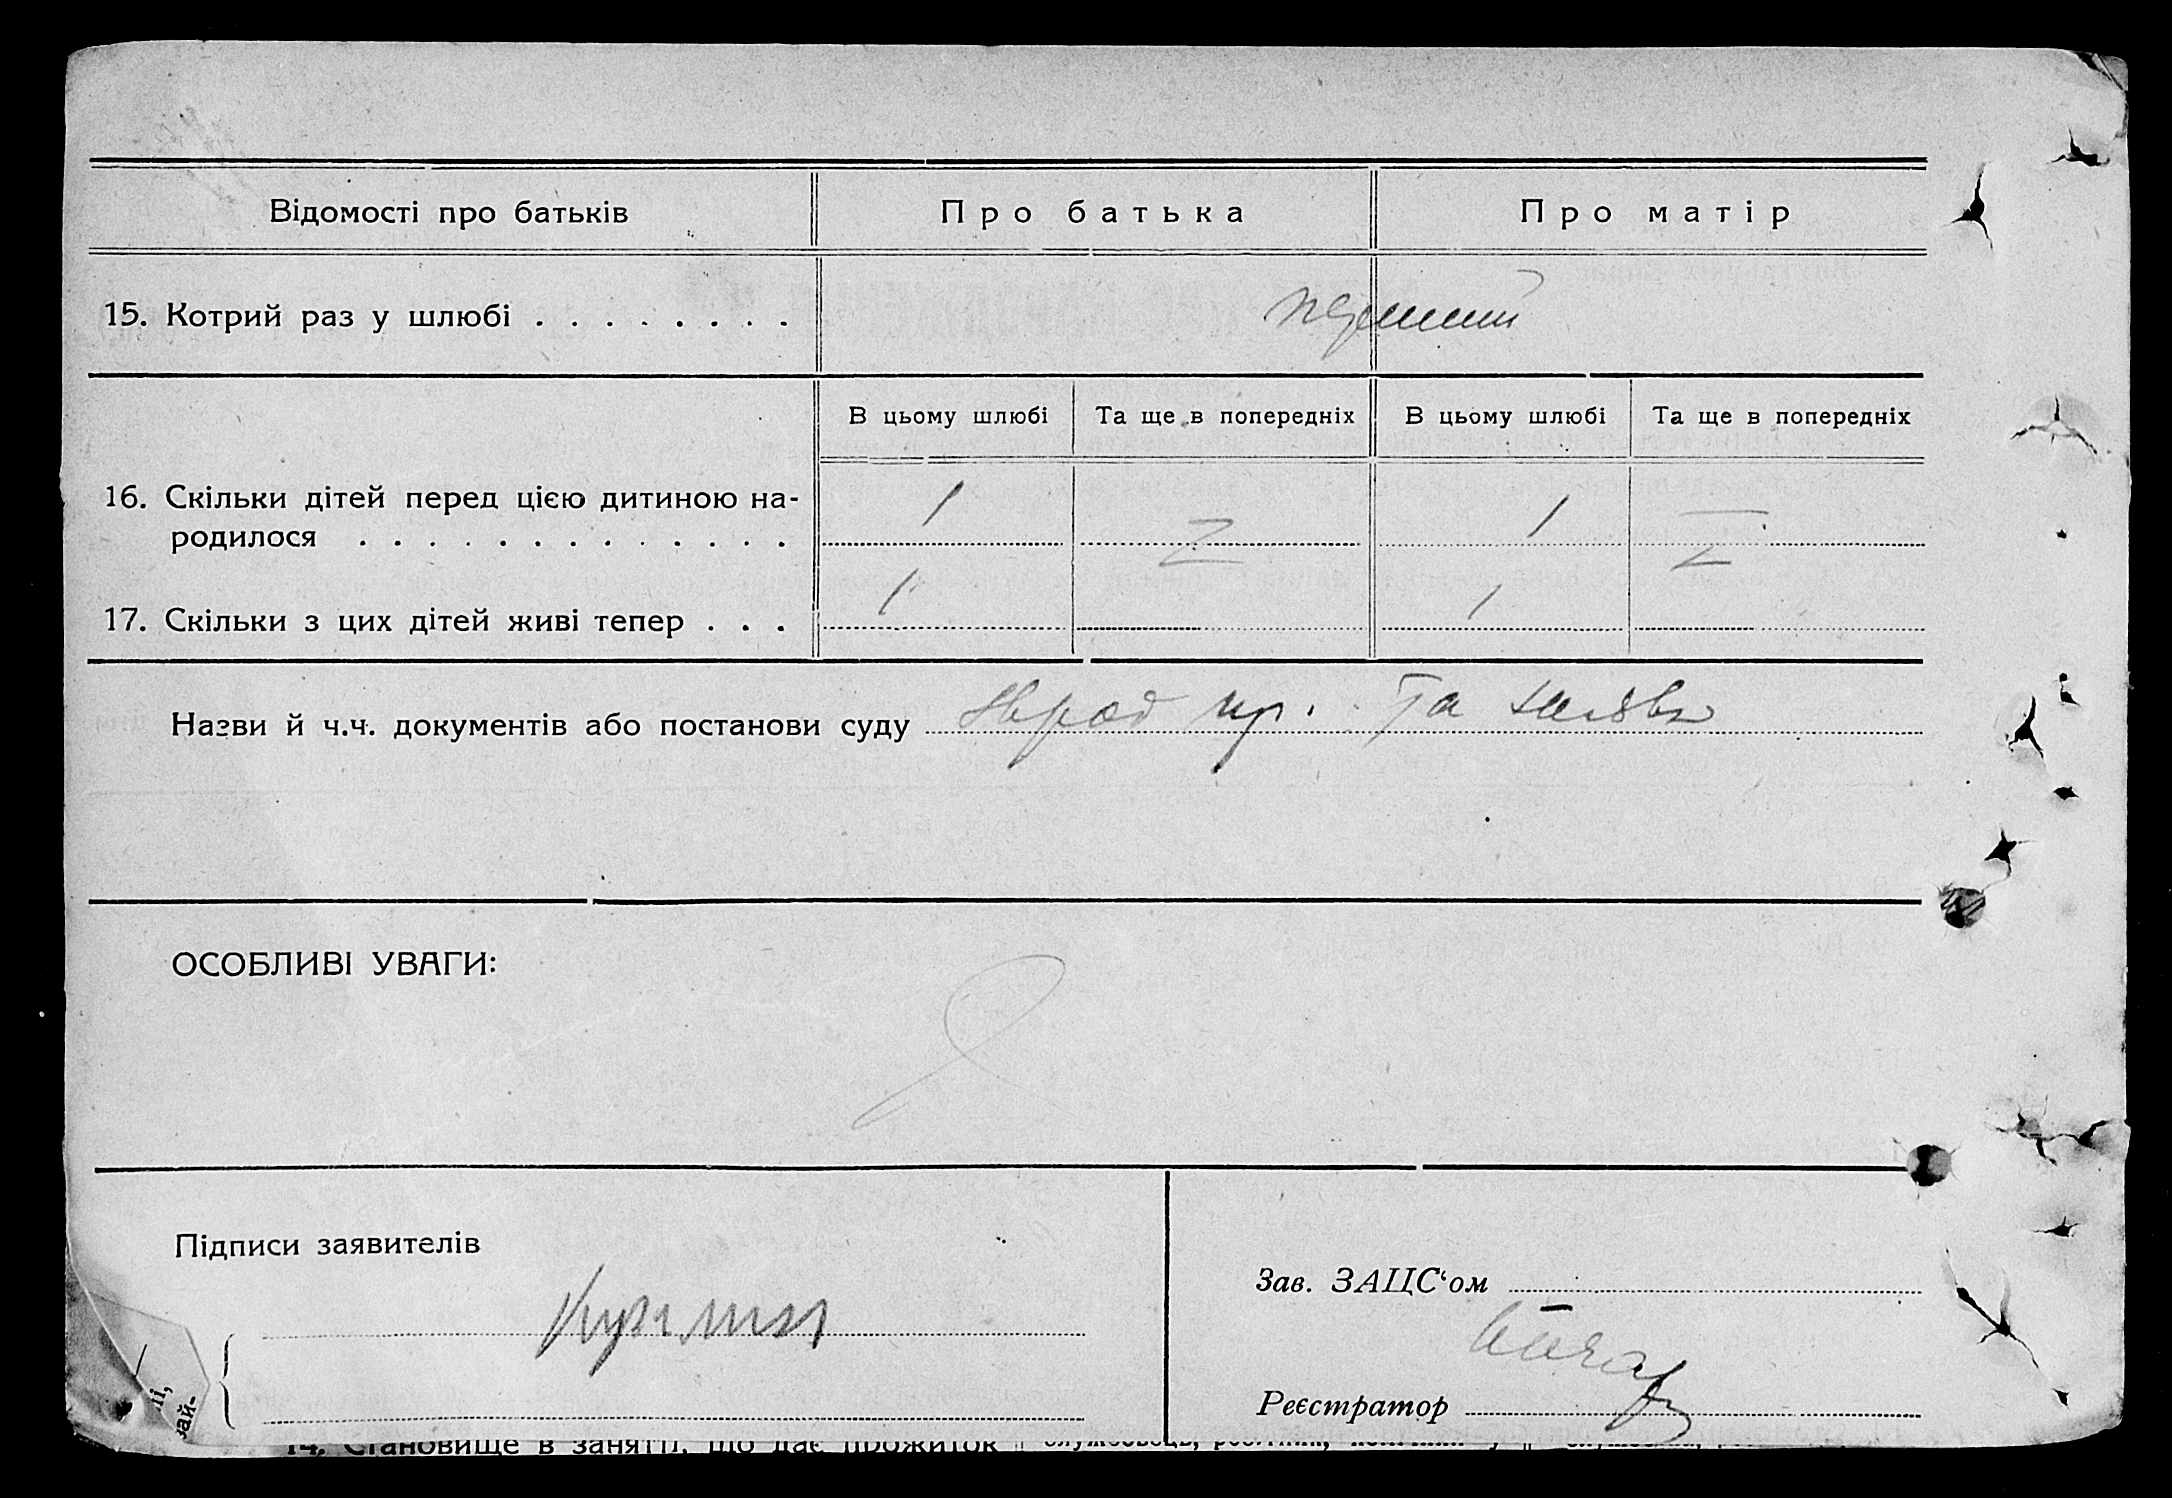 Відомості про батьків Про батька Про матір
15. Котрий раз у шлюбі . . . . . . . . перший
В цьому шлюбі Та ще в попередніх В цьому шлюбі Та ще в попередніх
16. Скільки дітей перед цією дитиною на-
родилося . . . . . . . . . . . . . 1 1
17. Скільки з цих дітей живі тепер . . . 1 1
Назви й ч.ч. документів або постанови суду пр. Та
ОСОБЛИВІ УВАГИ:
Підписи заявителів
Зав. ЗАЦС‘ом
Реєстратор
ії,
зай-
14. Становище в занятті, що дає прожиток службовець, робітник,